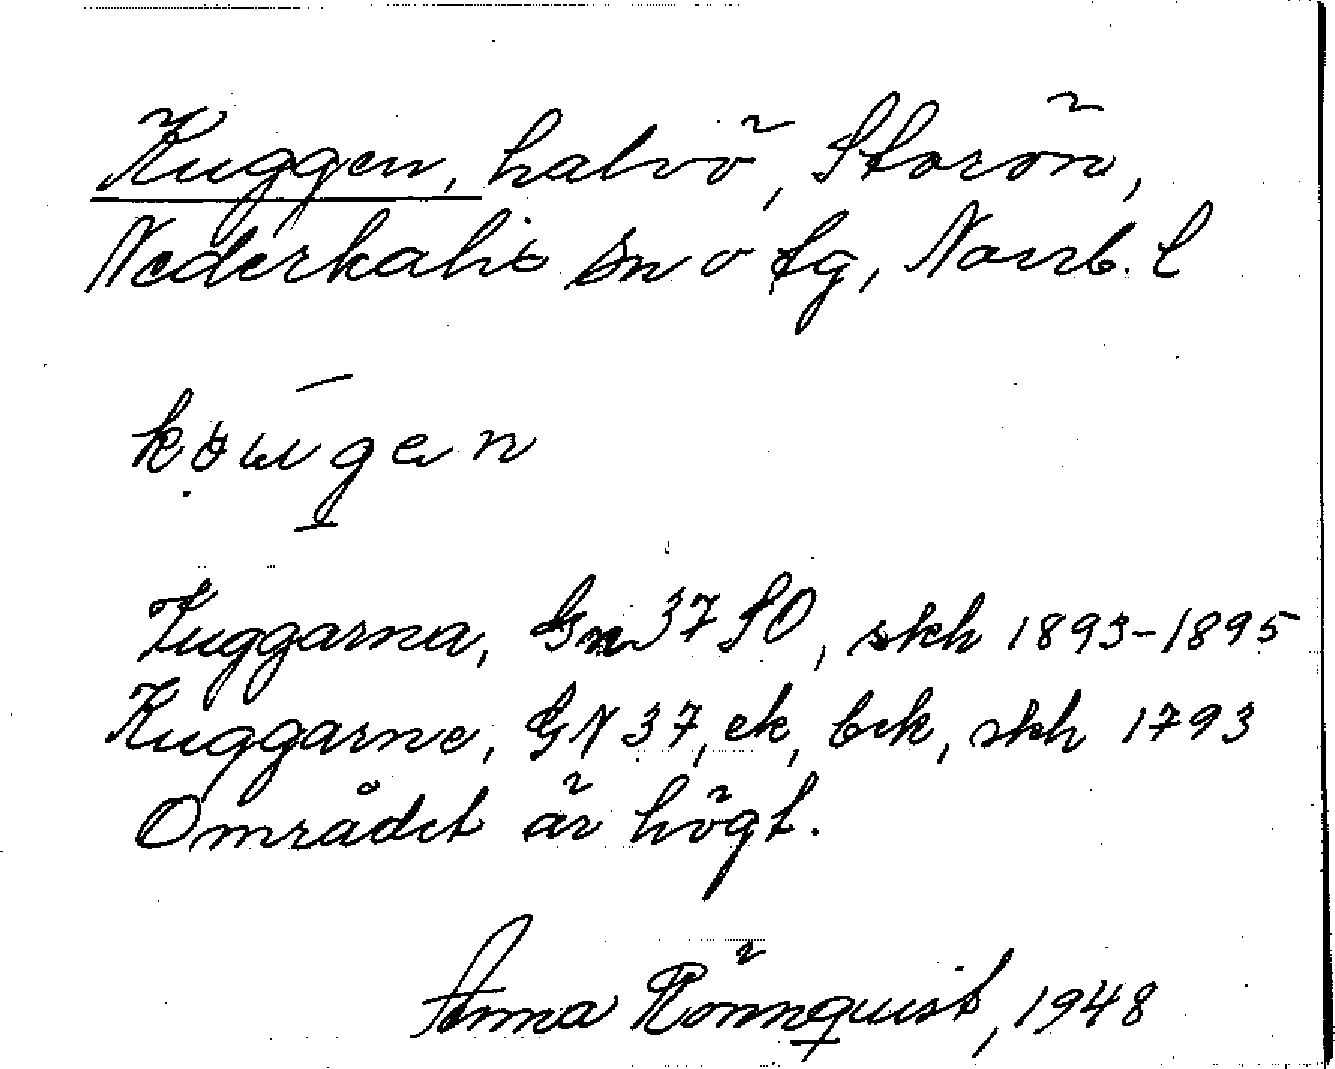 Kuggen, halvö, Storön,
Nederkalix sn o tg, Norrb. l
Tuggarna, Gn 37 SO, skh 1893-1895
Kuggarne, GN 37, ek, bek, skh 1793
Området är högt.
Anna Rönnquist, 1948